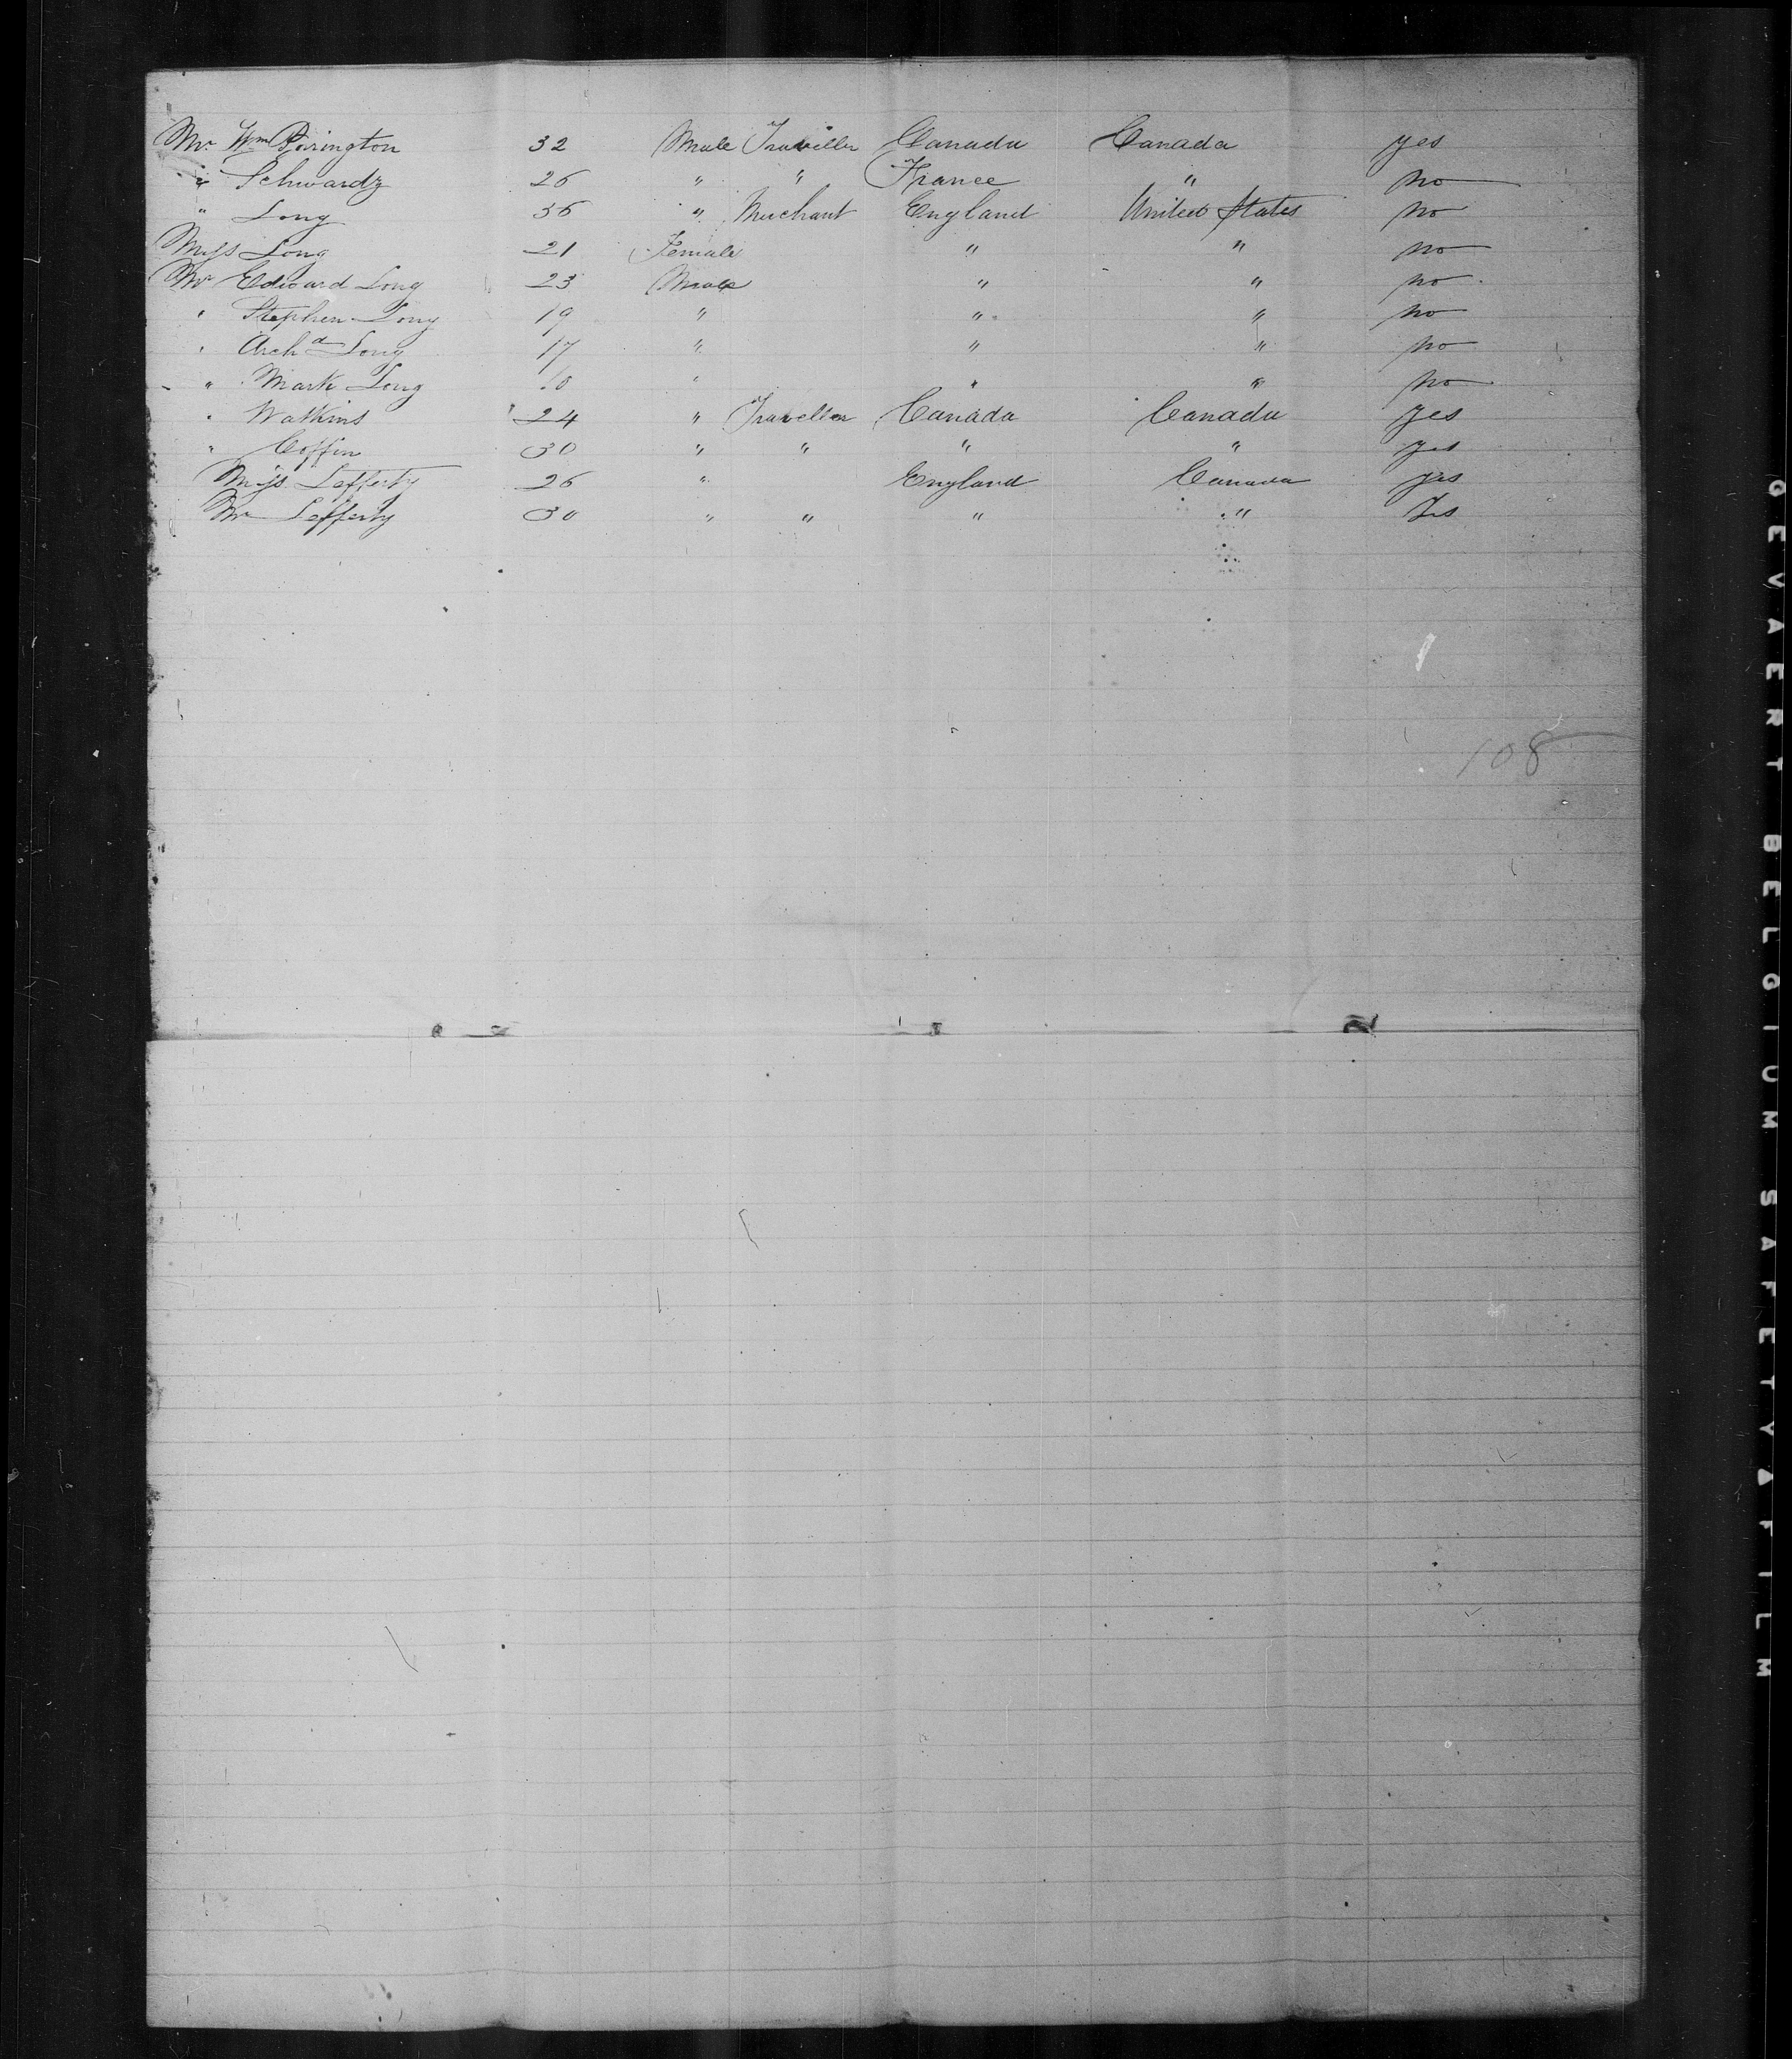 Mr Wm Pirington 32 Male Traveller Canada Canada yes
" Schwardz 26 " " France " no
" Long 36 " Merchant England United States no
Miss Long 21 Female " " no
Mr Edward Long 23 Male " " no
" Stephen Long 19 " " " no
" Archd Long 17 " " " no
" Mark Long 10 " " " no
" Watkins 24 " Traveller Canada Canada yes
" Coffin 30 " " " " yes
Miss Lefferty 26 " England Canada yes
Mr Lefferty 30 " " " " Yes
108
GEVAERT BELGIUM SAFETY FILM